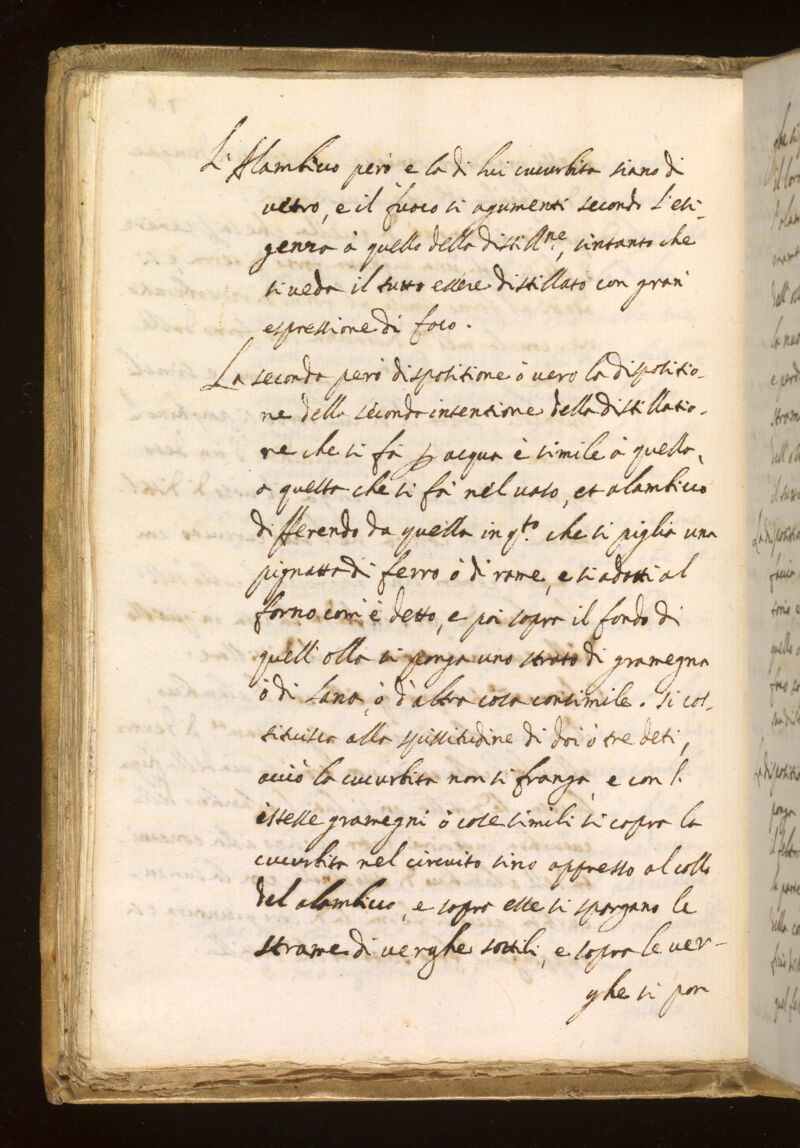 L'Alambicco però e la di lui cucurbita siano di
vetro, e il fuoco si agumenti secondo l'esi-
genza à quello della distill.ne, sintanto che
si veda il tutto essere distillato con gran'
espressione di foco.
La seconda però dispositione ò vero la dispositio-
ne della seconda intentione della distillatio-
ne che si fà p acqua è simile à quella,
a quella che si fà nel vaso, et alambicco
differendo da quella in q.to che si piglia una
pignatta di ferro ò di rame, e si adatti al
forno com' è detto, e poi sopra il fondo di
quell'olla si ponga uno strato di gramegna
ò di lana, ò d'altra cosa consimile. Si cos-
tituisca alla spissitudine di doi ò tre deti,
acciò la cucurbita non si franga, e con l'
istesse gramegni ò cose simili si copra la
cucurbita nel circuito sino appresso al collo
del alambicco, e sopra esse si spargano le
strame di verghe sottili, e sopra le ver-
ghe si pon